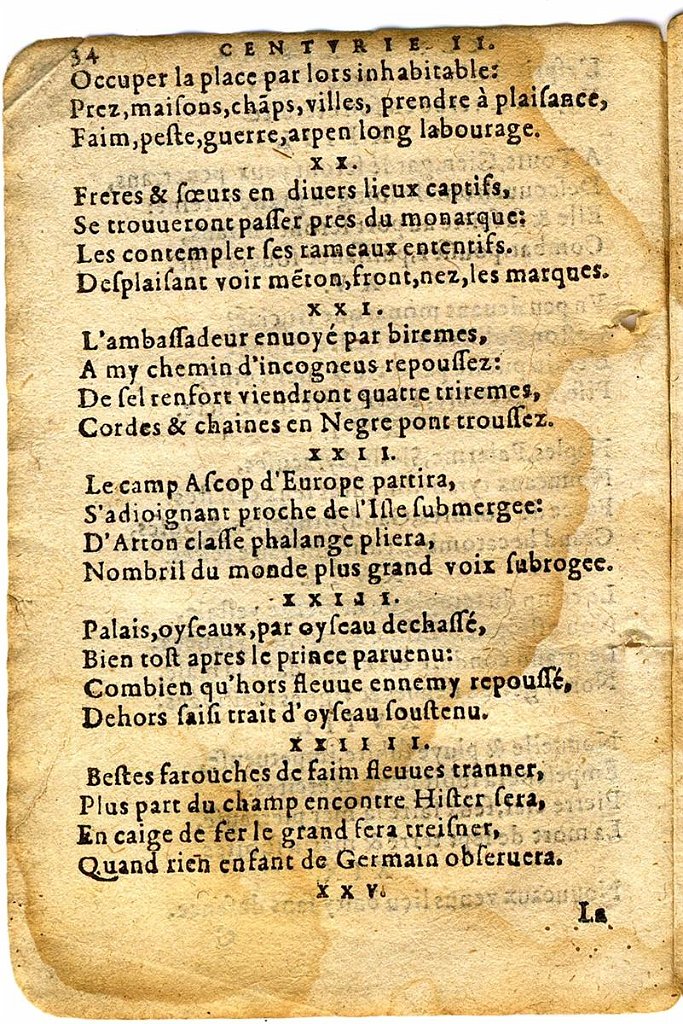 34 CENTVRIE II.
Occuper la place par lors inhabitable:
Prez,maiſons,chãps,villes, prendre à plaiſance,
Faim,peſte,guerre,arpen long labourage.
XX.
Freres & ſœurs en diuers lieux captifs,
Se trouueront paſſer pres du monarque:
Les contempler ſes rameaux ententifs.
Deſplaiſant voir mẽton,front,nez,les marques.
XXI.
L'ambaſſadeur enuoyé par biremes,
A my chemin d'incogneus repouſſez:
De ſel renfort viendront quatre triremes,
Cordes & chaines en Negre pont trouſſez.
XXII.
Le camp Aſcop d'Europe partira,
S'adioignant proche de l'Iſle ſubmergee:
D'Arton claſſe phalange pliera,
Nombril du monde plus grand voix ſubrogee.
XXIII.
Palais,oyſeaux,par oyſeau dechaſſé,
Bien toſt apres le prince paruenu:
Combien qu'hors fleuue ennemy repouſſé,
Dehors ſaiſi trait d'oyſeau ſouſtenu.
XXIIII.
Beſtes farouches de faim fleuues tranner,
Plus part du champ encontre Hiſter ſera,
En caige de fer le grand fera treiſner,
Quand rien enfant de Germain obſeruera.
XXV.
La